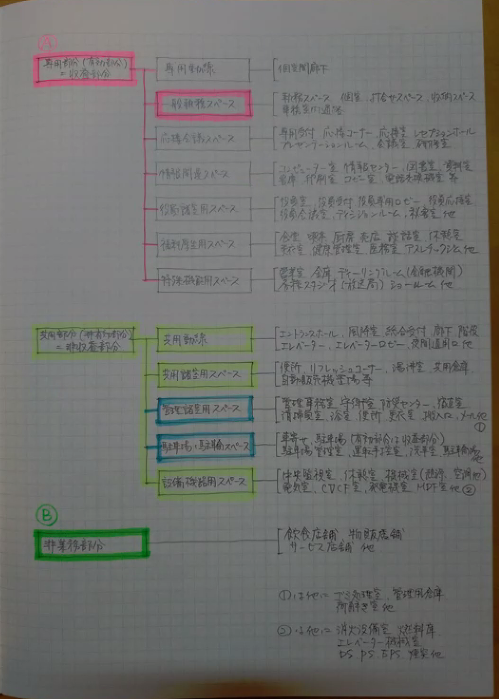 A
専用部分(有効部分)
=収益部分
専用動線
個室間廊下
一般執務スペース
執務スペース 個室 打合せスペース 収納スペース
応接会議スペース
専用受付 応接コーナー 応接室 レセプションホール
プレゼンテーションルーム 会議室 研修室
情報関連スペース
コンピューター室 情報センター 図書室 資料室
倉庫 印刷室 コピー室 電話交換機室 等
役員諸室用スペース
役員室 役員受付 役員専用ロビー 役員応接室
役員会議室 ディシジョンルーム 秘書室 他
福利厚生用スペース
食堂 喫茶 厨房 売店 談話室 休養室
更衣室 健康管理室 医務室 アスレチックジム 他
特殊機能用スペース
営業室 金庫 ディーリングルーム(金融機関)
スタジオ(放送局) ショールーム 他
共用部分(非有効部分)
=非収益部分
共用動線
エントランスホール 風除室 総合受付 廊下 階段
エレベーター エレベーターロビー 夜間通用口 他
共用諸室用スペース
便所 リフレッシュコーナー 湯沸室 共用倉庫
自動販売機置場 等
管理諸室用スペース
管理事務室 守衛室 防災センター 宿直室
清掃員室 浴室 便所 更衣室 搬入口 他
①
駐車場・駐輪場スペース
車寄せ 駐車場(有効部分は収益部分)
駐車場管理室 運転手控室 洗車室 駐輪場 他
設備機器用スペース
中央監視室 休養室 機械室(熱源, 空調他)
電気室 CVCF室 発電機室 MDF室 他 ②
B
非業務部分
飲食店舗 物販店舗
サービス店舗 他
①は他に ゴミ処理室 管理用倉庫
荷解き室 他
②は他に 消火設備室 燃料庫
エレベーター機械室
DS PS EPS 煙突 他